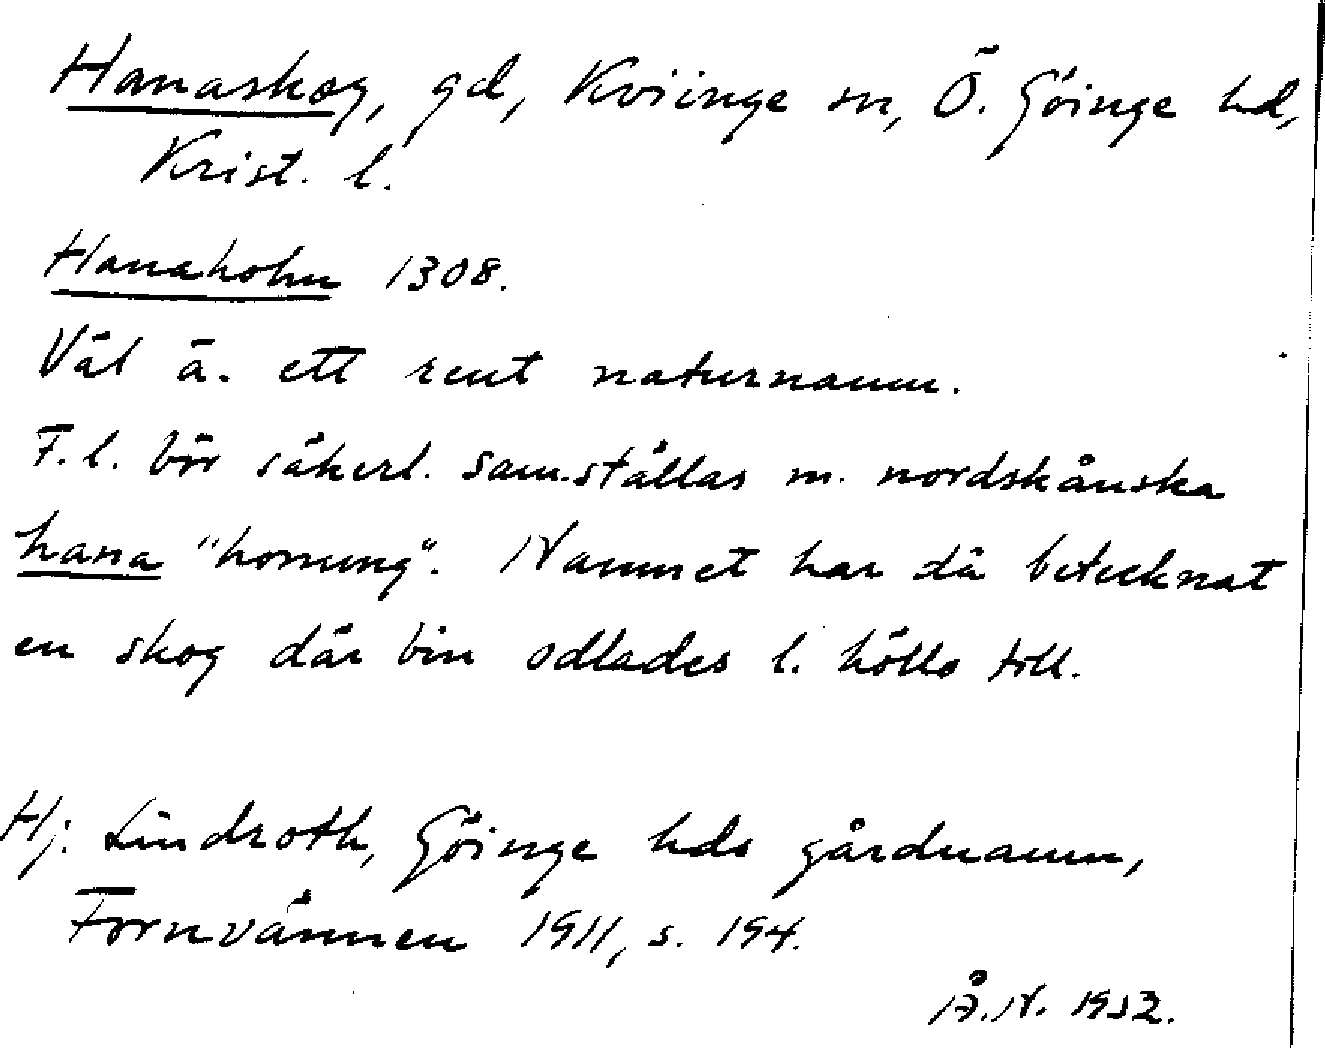 Hanaskog, gd, Kviinge sn, Ö. Göinge hd,
Krist. l.
Hanaholm 1308.
Väl ä. ett rent naturnamn.
F.l. bör säkerl. sam.ställas m. nordskånska
hana "honung". Namnet har då betecknat
en skog där bin odlades l. höllo till.
Hj. Lindroth, Göinge hds gårdnamn,
Fornvännen 1911, s. 194.
Å.N. 1932.